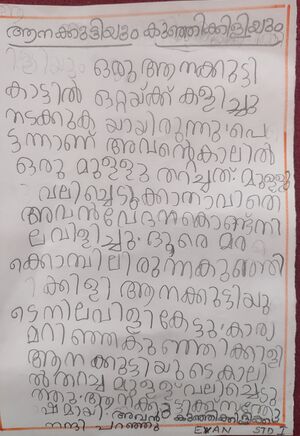 ആനക്കുട്ടിയും കുഞ്ഞിക്കിളിയും
ഒരു ആനക്കുട്ടി
കാട്ടിൽ ഒറ്റയ്ക്ക് കളിച്ചു
നടക്കുക യായിരുന്നു. പെ
ട്ടന്നാണ് അവന്റെ കാലിൽ
ഒരു മുള്ളു തറച്ചത്. മുള്ളു
വലിച്ചെടുക്കാനാവാതെ
അവൻ വേദനകൊണ്ട് നി
ലവിളിച്ചു. ദൂരെ മര
ക്കൊമ്പിലിരുന്ന കുഞ്ഞി
ക്കിളി ആനക്കുട്ടിയു
ടെ നിലവിളി കേട്ടു. കാര്യ
മറിഞ്ഞ കുഞ്ഞിക്കിളി
ആനക്കുട്ടിയുടെ കാലി
ൽ തറച്ച മുള്ള് വലിച്ചെടു
ത്തു. ആനക്കുട്ടിക്ക് സന്തോ
ഷമായി. അവൻ കുഞ്ഞിക്കിളിക്കു
നന്ദി പറഞ്ഞു
EVAN STD I